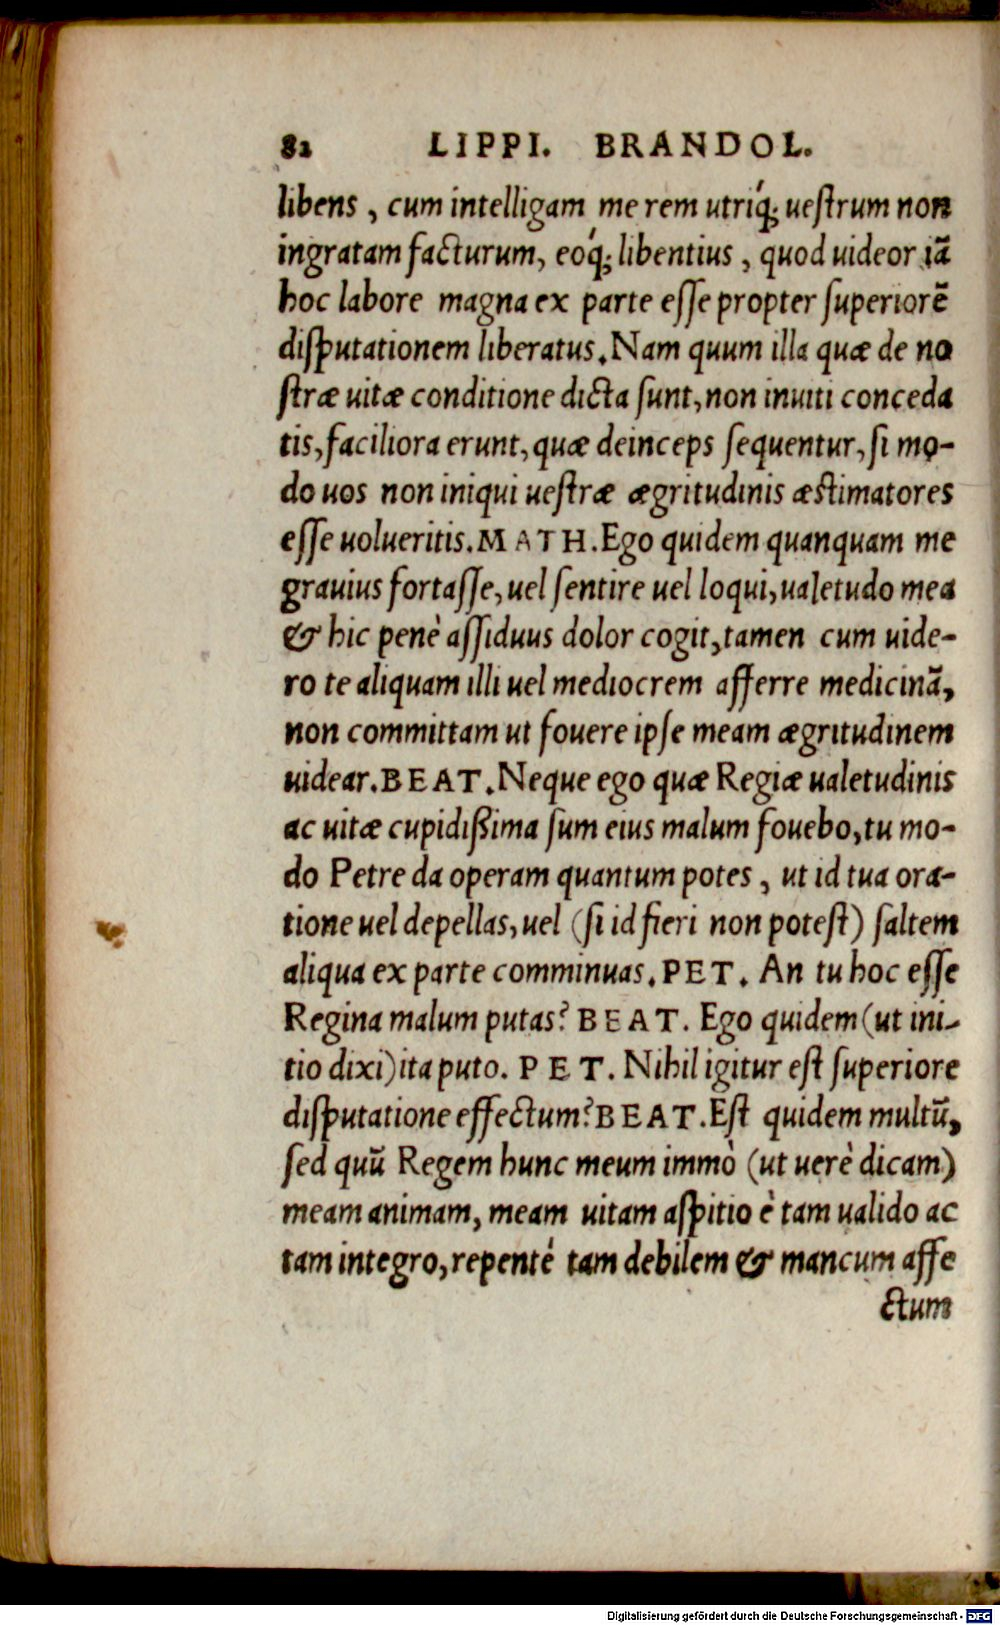 82 LIPPI. BRANDOL.
libens, cum intelligam me rem utriq́; ueſtrum non
ingratam facturum, eoq́; libentius, quod uideor iã
hoc labore magna ex parte eſſe propter ſuperiorẽ
diſputationem liberatus. Nam quum illa quæ de no
ſtræ uitæ conditione dicta ſunt, non inuiti conceda
tis, faciliora erunt, quæ deinceps ſequentur, ſi mo-
do uos non iniqui ueſtræ ægritudinis æstimatores
eſſe uolueritis. MATH. Ego quidem quanquam me
grauius fortaſſe, uel ſentire uel loqui, ualetudo mea
& hic penè aſſiduus dolor cogit, tamen cum uide-
ro te aliquam illi uel mediocrem afferre medicinã,
non committam ut fouere ipſe meam ægritudinem
uidear. BEAT. Neque ego quæ Regiæ ualetudinis
ac uitæ cupidißima ſum eius malum fouebo, tu mo-
do Petre da operam quantum potes, ut id tua ora-
tione uel depellas, uel (ſi id fieri non poteſt) ſaltem
aliqua ex parte comminuas. PET. An tu hoc eſſe
Regina malum putas? BEAT. Ego quidem (ut ini-
tio dixi) ita puto. PET. Nihil igitur eſt ſuperiore
diſputatione effectum? BEAT. Eſt quidem multũ,
ſed quũ Regem hunc meum immò (ut uerè dicam)
meam animam, meam uitam aſpitio è tam ualido ac
tam integro, repentè tam debilem & mancum affe
ctum
Digitalisierung gefördert durch die Deutsche Forschungsgemeinschaft - DFG